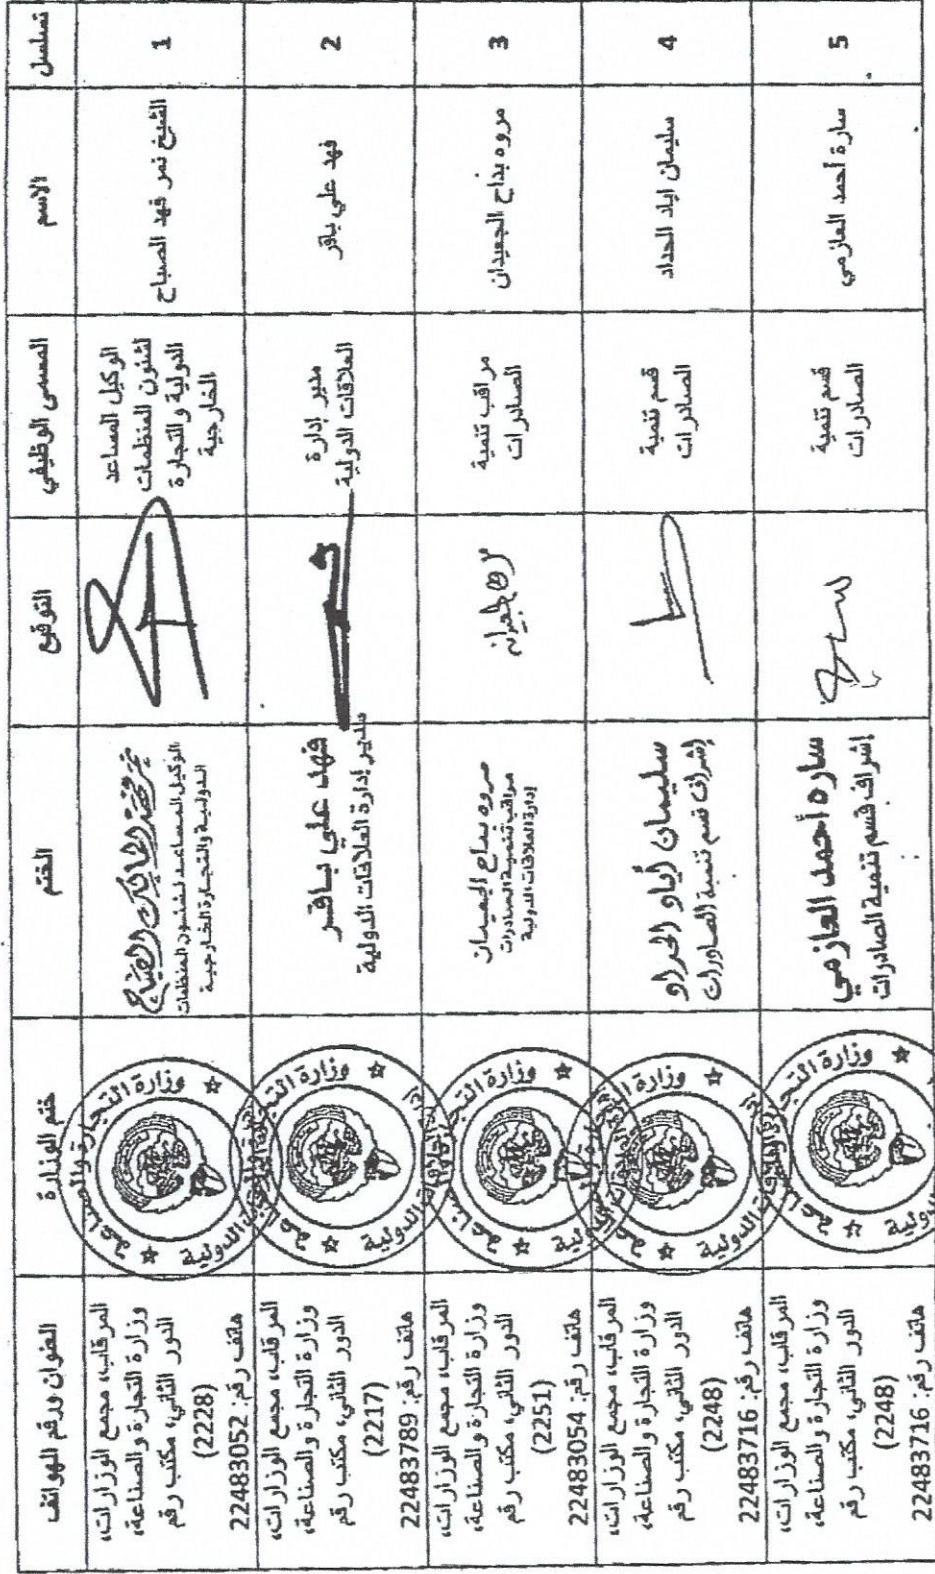 تسلسل
الاسم
المسمى الوظيفي
التوقيع
الختم
ختم الوزارة
العنوان ورقم الهواتف
1
الشيخ نمر فهد الصباح
الوكيل المساعد
لشئون المنظمات
الدولية والتجارة
الخارجية
الوكيل المساعد لشئون المنظمات
الدولية والتجارة الخارجية
وزارة التجارة والصناعة
المرقاب، مجمع الوزارات،
وزارة التجارة والصناعة،
الدور الثاني، مكتب رقم
(2228)
هاتف رقم: 22483052
2
فهد علي باقر
مدير إدارة
العلاقات الدولية
فهد علي باقر
مدير إدارة العلاقات الدولية
وزارة التجارة والصناعة
المرقاب، مجمع الوزارات،
وزارة التجارة والصناعة،
الدور الثاني، مكتب رقم
(2217)
هاتف رقم: 22483789
3
مروه بداح الجعيدان
مراقب تنمية
الصادرات
مروه بداح الجعيدان
مراقب تنمية الصادرات
إدارة العلاقات الدولية
وزارة التجارة والصناعة
المرقاب، مجمع الوزارات،
وزارة التجارة والصناعة،
الدور الثاني، مكتب رقم
(2251)
هاتف رقم: 22483054
4
سليمان اياد الحداد
قسم تنمية
الصادرات
سليمان أياد الحداد
إشراف قسم تنمية الصادرات
وزارة التجارة والصناعة
المرقاب، مجمع الوزارات،
وزارة التجارة والصناعة،
الدور الثاني، مكتب رقم
(2248)
هاتف رقم: 22483716
5
سارة أحمد العازمي
قسم تنمية
الصادرات
ساره أحمد العازمي
إشراف قسم تنمية الصادرات
وزارة التجارة
المرقاب، مجمع الوزارات،
وزارة التجارة والصناعة،
الدور الثاني، مكتب رقم
(2248)
هاتف رقم: 22483716